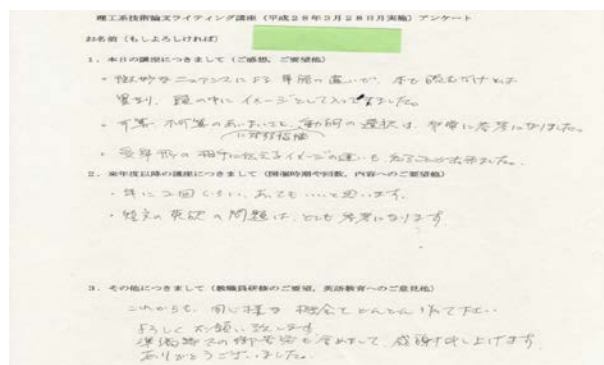 理工系技術論文ライティング講座(平成28年3月28日実施)アンケート
お名前(もしよろしければ)
1.本日の講座につきまして(ご感想、ご要望他)
・微妙なニュアンスによる単語の違いが、本を読むだけとは
異なり、頭の中にイメージとして入ってきました。
・可算、不可算のあいまいさと、動詞の選択は、非常に参考になりました。
・受身形の相手に伝えるイメージの違いも、知ることが出来ました。
2.来年度以降の講座につきまして(開催時期や回数、内容へのご要望他)
・年に2回くらい、あってもいいと思います。
・短文の英訳の問題は、とても参考になります。
3.その他につきまして(教職員研修のご要望、英語教育へのご意見他)
これからも、同じ様な機会をどんどん
よろしくお願い致します。
準備等の御苦労も含めまして、感謝申し上げます。
ありがとうございました。